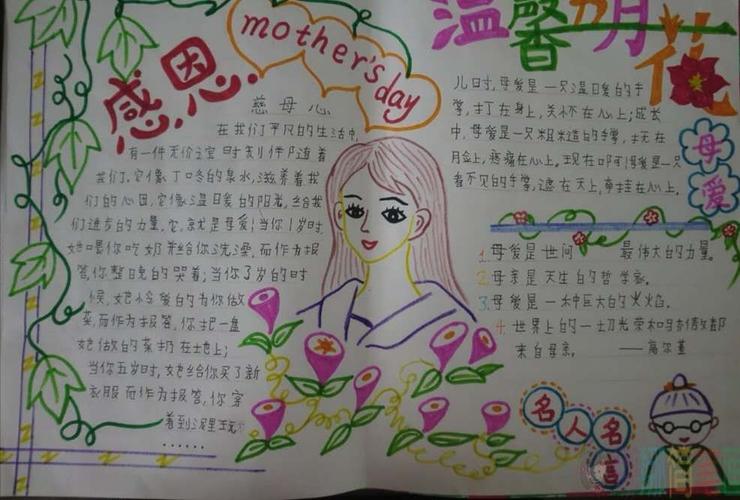 感恩
mother's day
慈母心
在我们平凡的生活中,
有一件无价之宝时刻伴随着
我们,它像丁冬的泉水,滋养着我
们的心田,它像温暖的阳光,给我
们进步的力量,它就是母爱!当你1岁时
她喂你吃奶并给你洗澡,而作为报
答,你整晚的哭着;当你了3岁的时
候,她怜爱的为你做
菜,而作为报答,你把一盘
她做的菜扔在地上;
当你五岁时,她给你买了新
衣服而作为报答,你穿
着到泥里玩
......
温馨
月花
母爱
儿时,母爱是一只温暖的手
掌,打在身上,关怀在心上;成长
中,母爱是一只粗糙的手掌,
脸上,疼痛在心上,现在
看不见的手掌,遮在天上,牵挂在心上。
1.母爱是世间 最伟大的力量。
2.母亲是天生的哲学家。
3.母爱是一种巨大的火焰。
4.世界上的一切光荣和骄傲都
来自母亲。 ——高尔基
名人名言